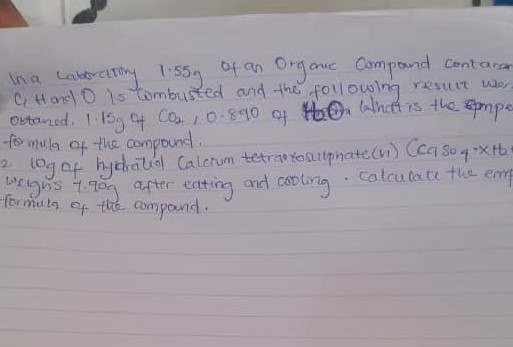 In a Laboratory 1.55g of an Organic Compound
C, H and O is combusted and the following result
obtained. 1.15g of CO2, 0.890 of H2O. What is the
formula of the compound.
2 10g of hydrated Calcium tetraoxosulphate(vi) (CaSO4.XH2
weighs 7.90g after eating and cooling. Calculate the
formula of the compound.